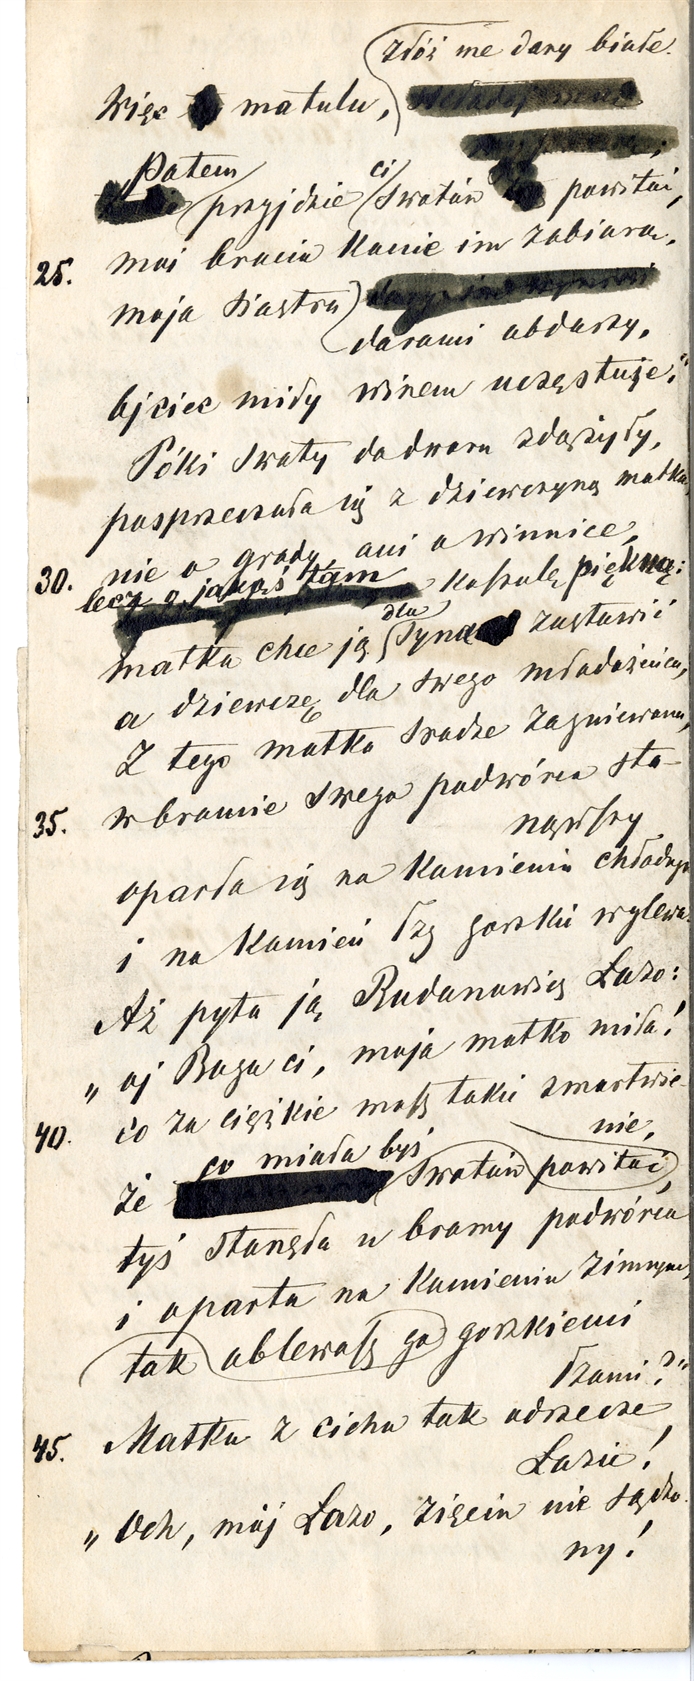 złóż me dary białe.
Więc matulu,
Potem
przyjdzie ci swatów powitać,
25. moi bracia konie im zabiorą,
moja siostra
darami obdarzy,
ojciec miły winem uczęstuje."
Póki swaty do dworu zdążyły,
posprzeczała się z dziewczyną matka,
30. nie o grody, ani o winnice,
lecz o jakąś tam koszulę piękną:
matka chce ją dla syna zostawić
a dziewczę dla swego młodzieńca,
Z tego matka srodze zagniewana,
35. w bramie swego podwórca sta-
nąwszy
oparła się na kamieniu chłodnym
i na kamień łzy gorzkie wylewa.
Aż pyta ją Rudanowicz Lazo:
„oj Boga ci, moja matko miła!
40. co za ciężkie masz takie zmartwie-
nie,
co miała byś
że swatów powitać,
tyś stanęła u bramy podwórca
i oparta na kamieniu zimnym,
tak oblewasz go gorzkiemi
łzami?"
45. Matka z cicha tak odrzecze
Lazie!
„Och, mój Lazo, zięciu nie sądzo-
ny!